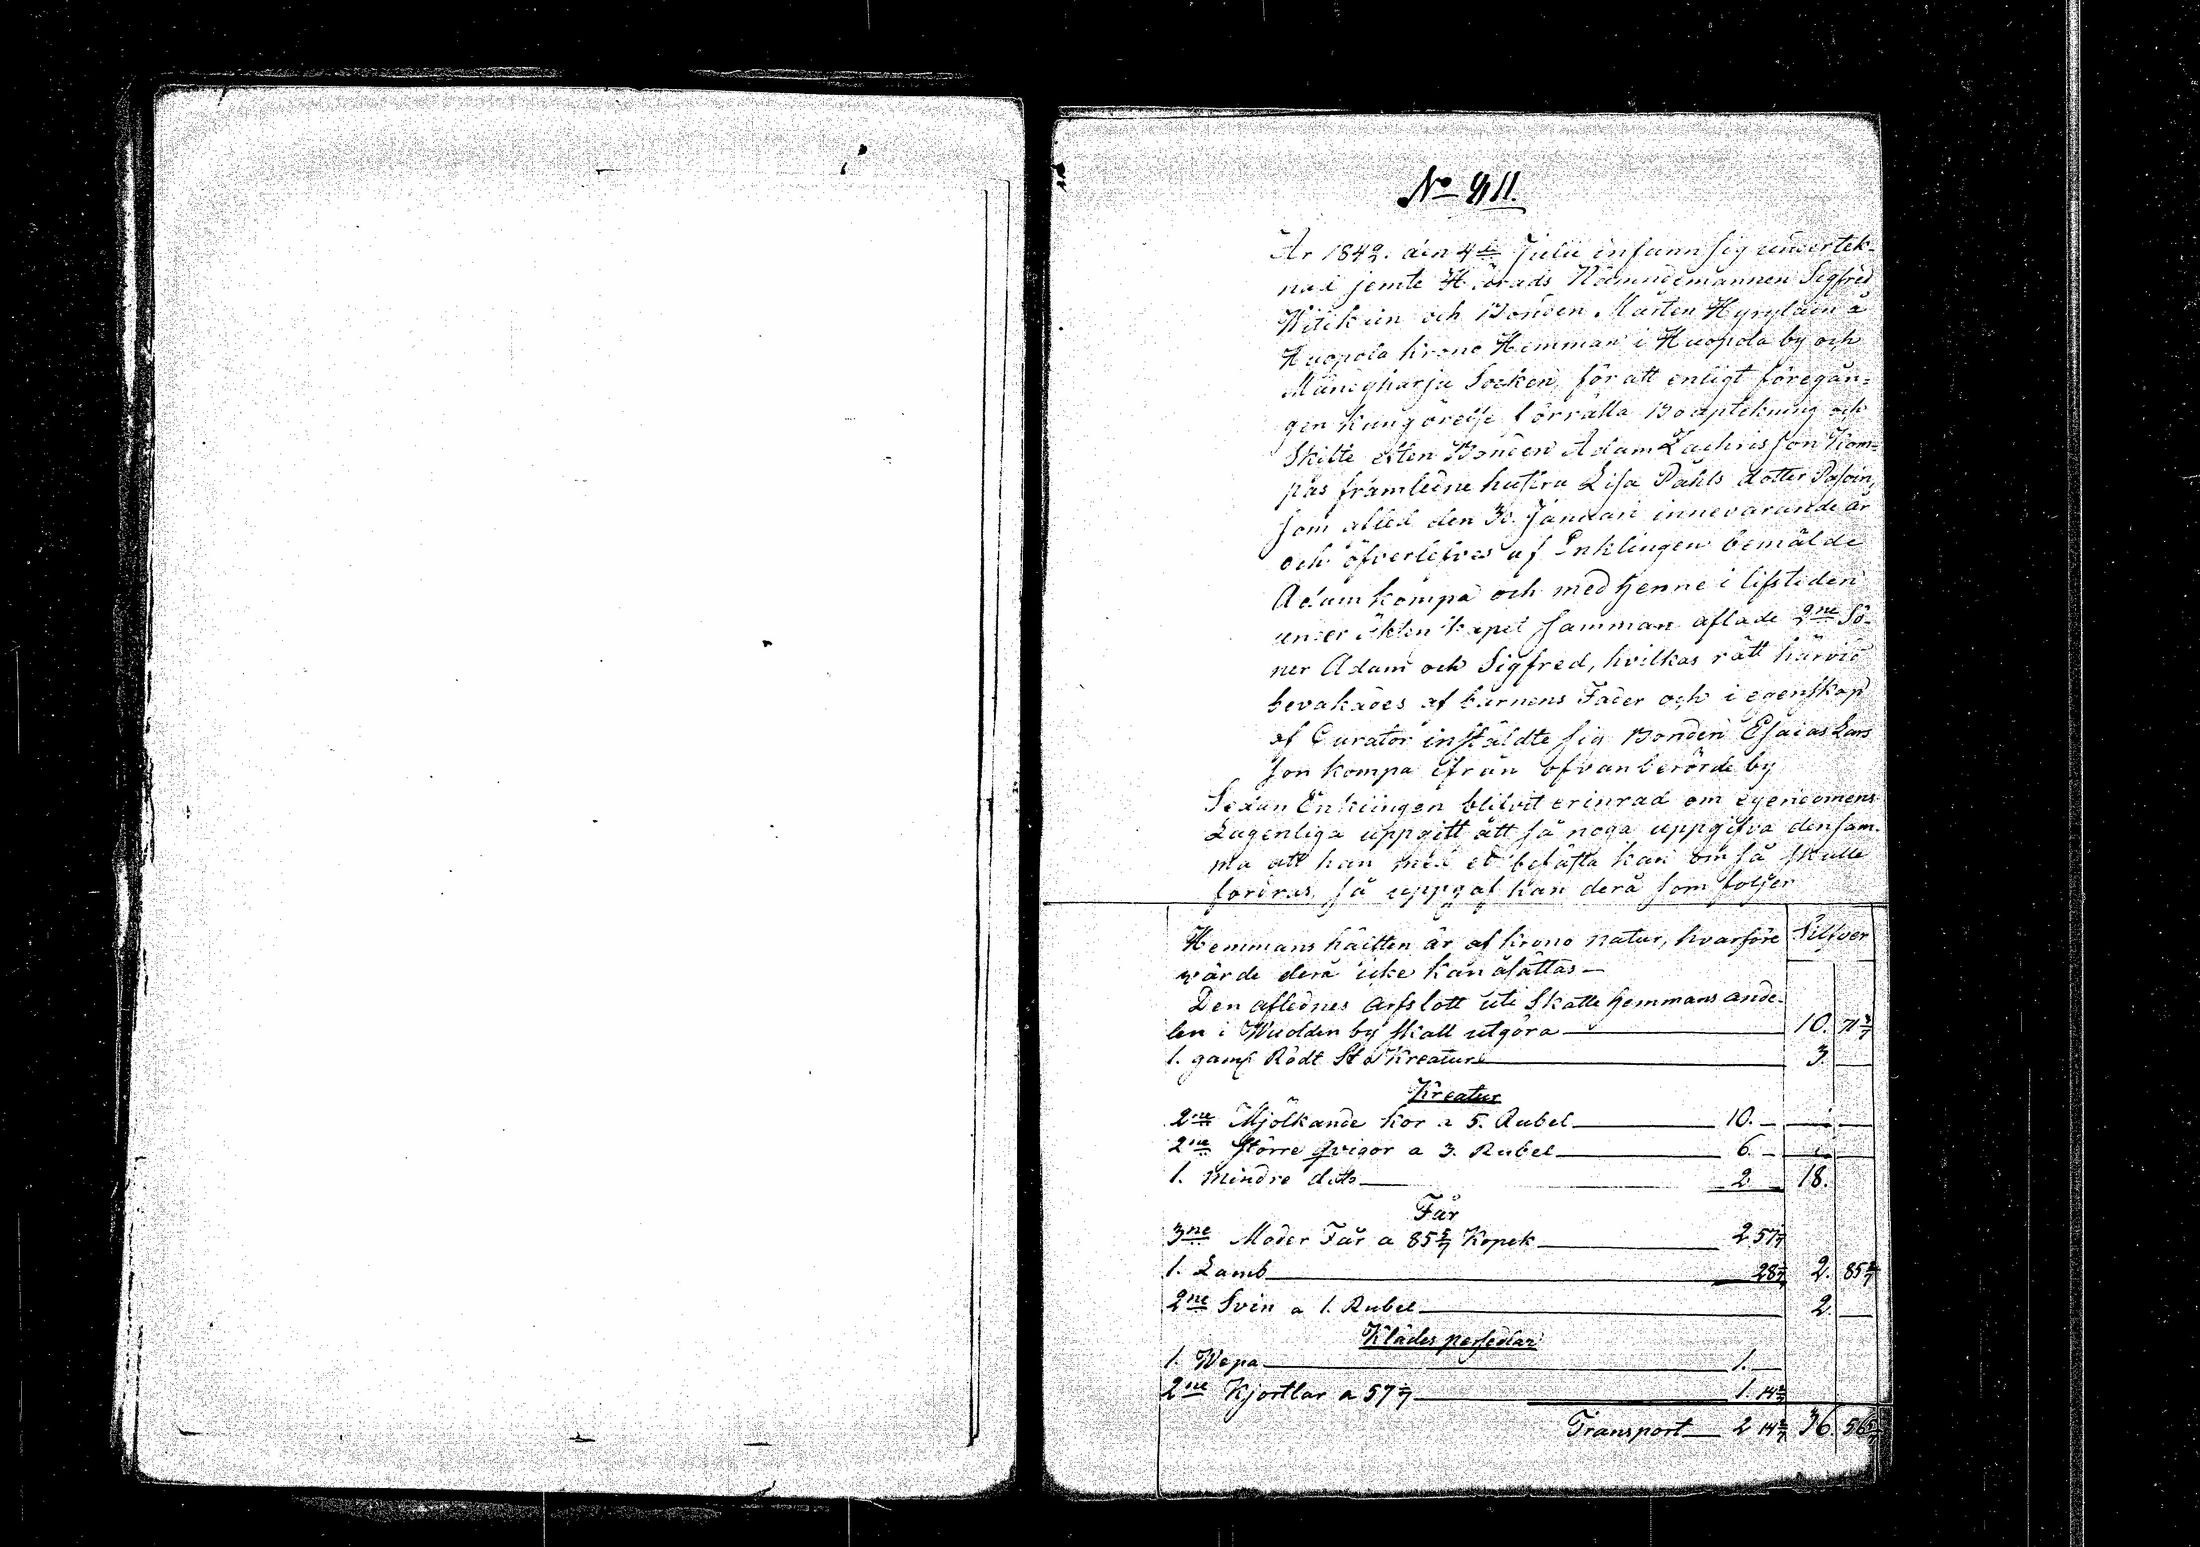 No 811.
År 1842. den 4de Julii infann sig undertek-
nad jemte Härads Nämndemannen Sigfred
Witikain och Bonden Mårten Hyryläin å
Huopola krono Hemman i Huopola by och
Mäntyharju Socken, för att enligt föregån-
gen kungörelse förrätta Bouptekning och
Skilte efter Bonden Adam Zachrisson Kom-
pas framledne hustru Lisa Påhls dotter Pasoin,
som afled den 30. Januari innevarande år
och öfverlefves af Enklingen bemälde
Adam kompa och med henne i lifstiden
under äktenskapet samman aflade 2ne Sö-
ner Adam och Sigfred, hvilkas rätt härvid
bevakades af barnens Fader och i egenskap
af Curator instäldte sig Bonden Esaias Lars
son kompa ifrån ofvanberörde by
Sedan Enklingen blifvit erinrad om egendomens
Lagenliga uppgift att så noga uppgifva densam-
ma att han med ed besästa kan om så skulle
fordras, så uppgaf han derå som följer
Hemmans häiften är af krono natur, hvarföre Silfver
värde derå icke kan åsättas —
Den aflednes arfslott uti Skatte hemmans ande-
len i Wuolden by skall utgöra — 10. 71 3/7
1. gam Rödt Sto Kreatur — 3. —
Kreatur
2ne Mjölkande kor a 5. Rubel — 10. —
2ne Större qvigor a 3. Rubel — 6. —
1. mindre dito — 2. 18.
Får
3ne Moder Får a 85 5/7 Kopek — 2 57 1/7
1. Lamb — 28 4/7 2. 85 5/7
2ne Svin a 1. Rubel — 2. —
Klädes persedlar
1. Wepa — 1. —
2ne Kjortlar a 57 1/7 — 1. 14 2/7
Transport — 2 14 2/7 36. 56